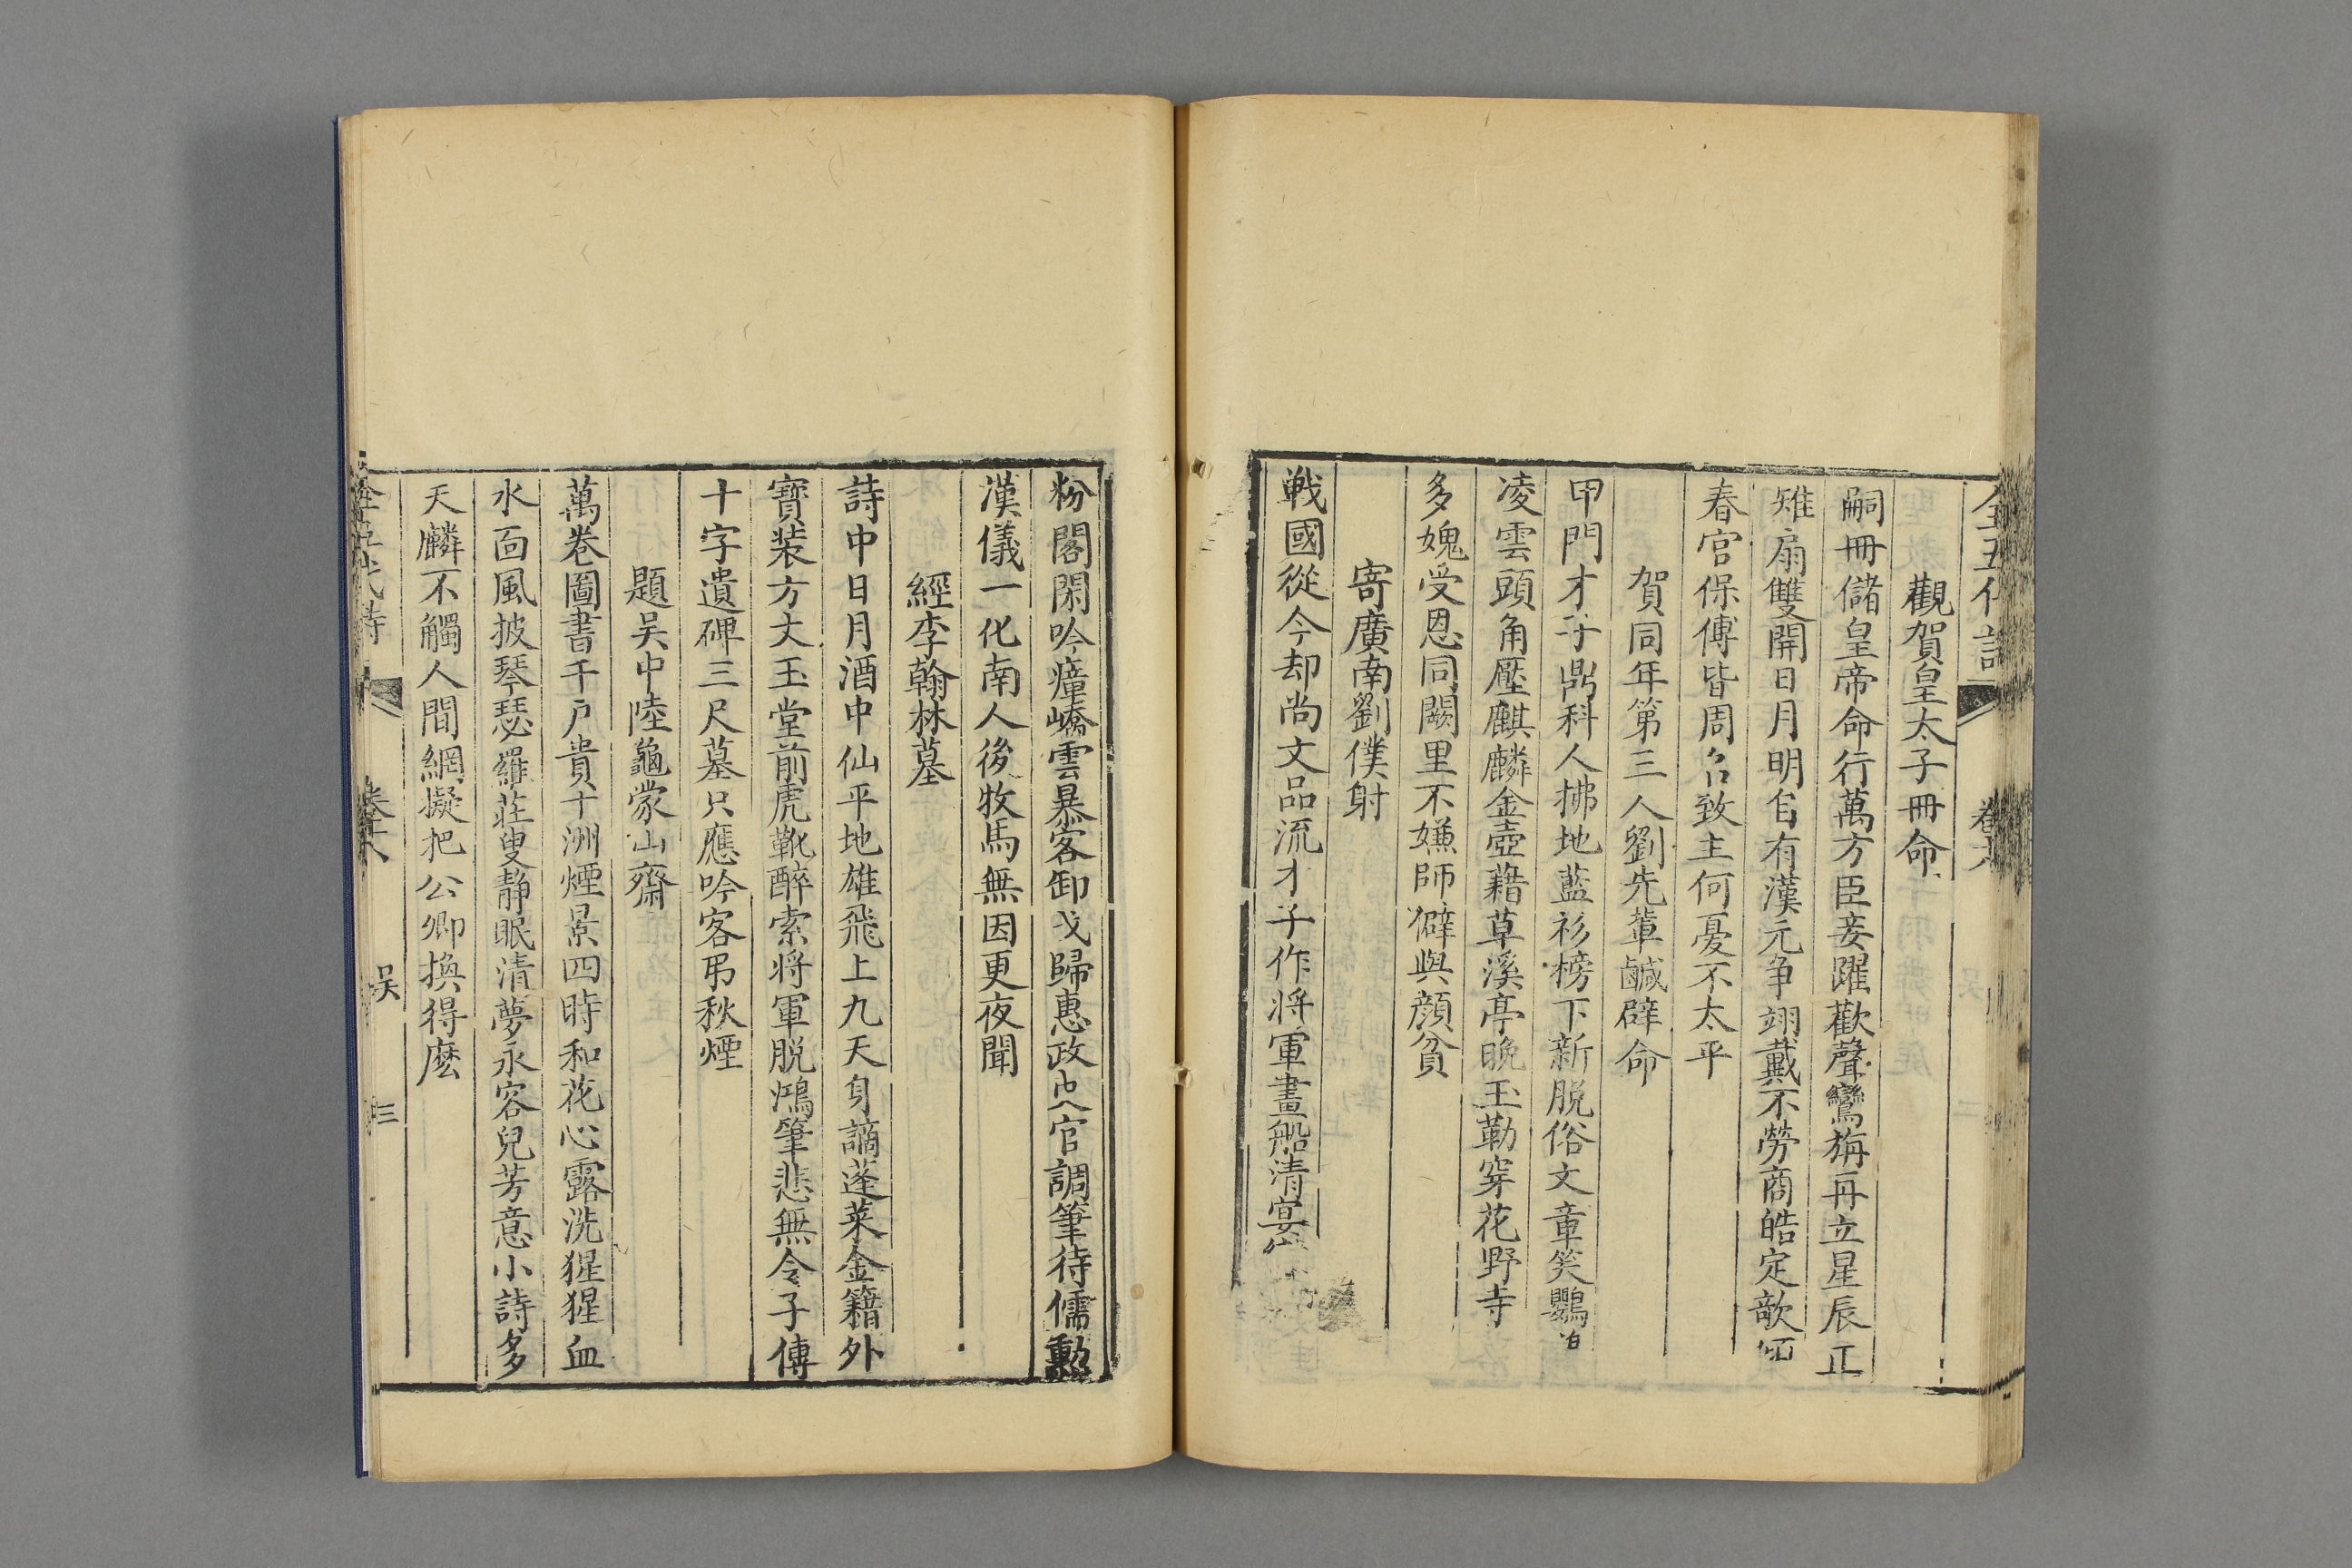 全五代詩 卷十六
觀賀皇太子冊命
嗣冊儲皇帝命行萬方臣妾躍歡聲鸞旃再立星辰正
雉扇雙開日月明自有漢元争翊戴不勞商皓定欹
春官保傅皆周召致主何憂不太平
賀同年第三人劉先輩鹹辟命
甲門才子鼎科人拂地藍衫榜下新脱俗文章笑鸚
凌雲頭角壓麒麟金壺藉草溪亭晚玉勒穿花野寺
多媿受恩同闕里不嫌師僻與顔貧
寄廣南劉僕射
戰國從今却尚文品流才子作將軍畫船清宴
粉閣閑吟瘴嶠雲暴客卸戈歸惠政史官調筆待儒勳
漢儀一化南人後牧馬無因更夜聞
經李翰林墓
詩中日月酒中仙平地雄飛上九天身謫蓬萊金籍外
寶装方丈玉堂前虎靴醉索將軍脱鴻筆悲無令子傳
十字遺碑三尺墓只應吟客弔秋煙
題吴中陸龜蒙山齋
萬卷圖書千户貴十洲煙景四時和花心露洗猩猩血
水面風披琴瑟羅莊叟静眠清夢永容兒芳意小詩多
天麟不觸人間網擬把公卿換得麽
全五代詩 吴 三